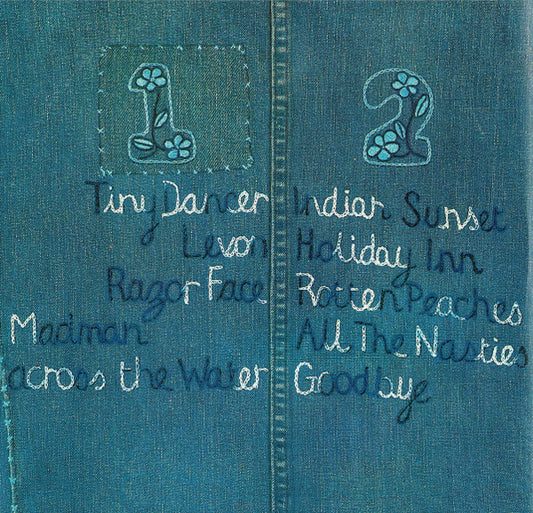 1
Tiny Dancer
Levon
Razor Face
Madman
across the Water
2
Indian Sunset
Holiday Inn
Rotten Peaches
All The Nasties
Goodbye